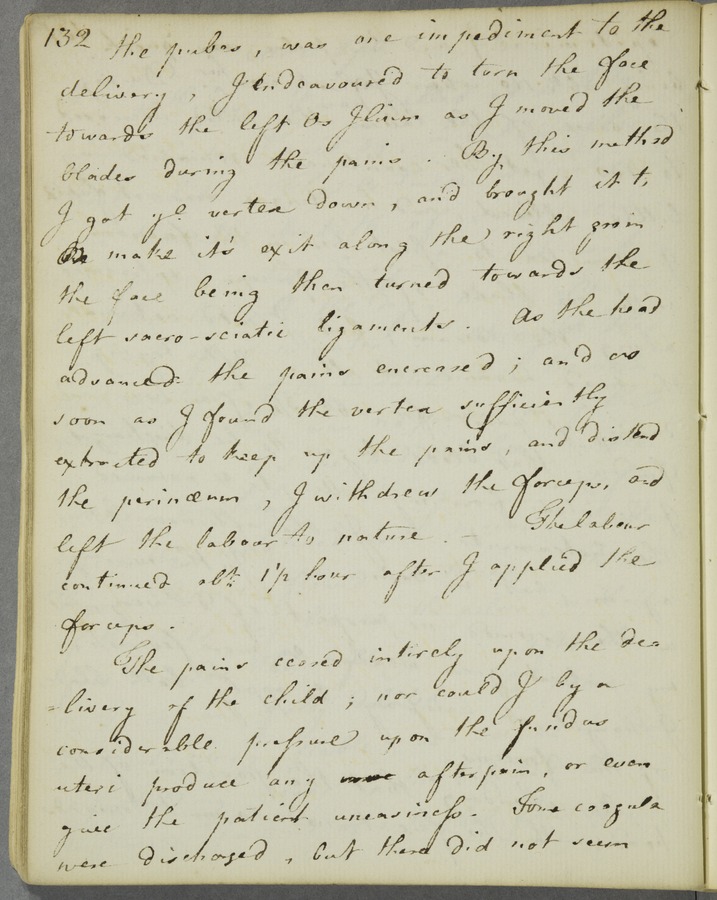 132 the pubes, was one impediment to the
delivery, I endeavoured to turn the face
towards the left Os Ilium as I moved the
blades during the pains. By this method
I got ye. vertex down, and brought it to
make it's exit along the right groin
the face being then turned towards the
left sacro-sciatic ligaments. As the head
advanced the pains encreased; and as
soon as I found the vertex sufficiently
extracted to keep up the pains, and distend
the perinæum, I withdrew the forceps, and
left the labour to nature. - The labour
continued abt. 1 1/2 hour after I applied the
forceps.
The pains ceased intirely upon the de=
=livery of the child; nor could I by a
considerable pressure upon the fundus
uteri produce any afterpain, or even
give the patient uneasiness. Some coagula
were discharged, but there did not seem